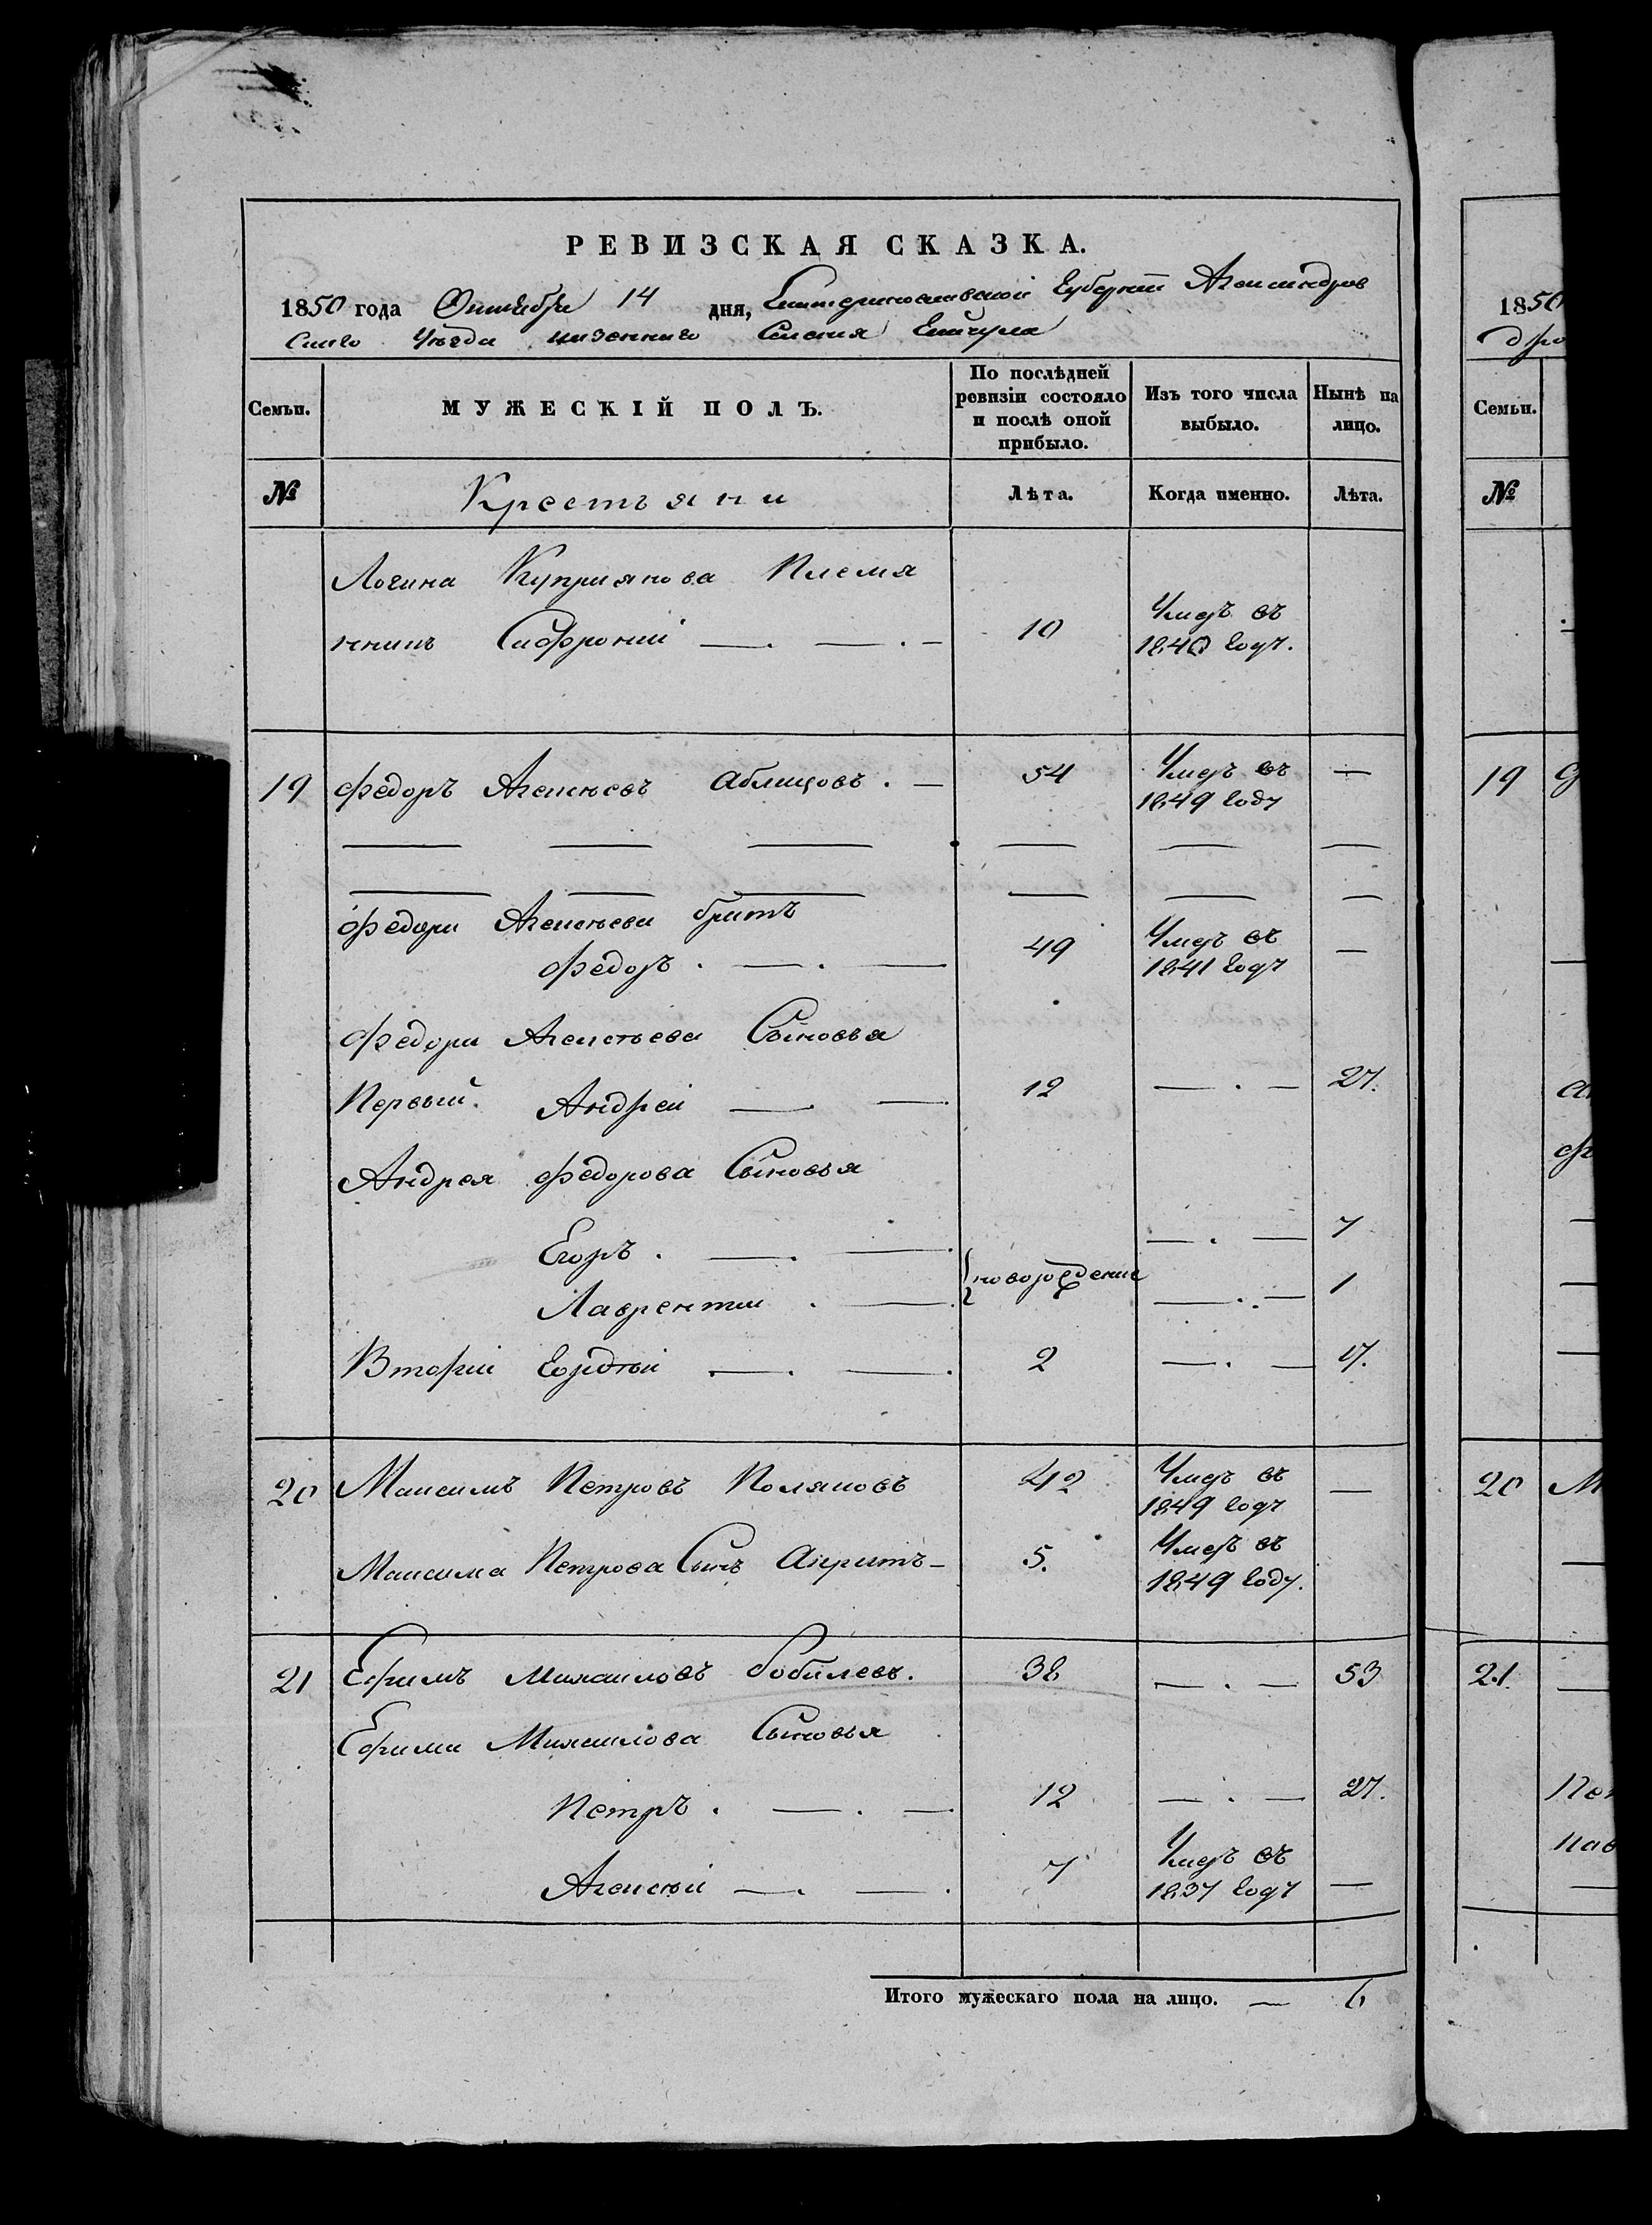 РЕВИЗСКАЯ СКАЗКА.
1850 года Октября 14 дня, Екатеринославской Губернии Александров
скаго Уѣзда казеннаго Селения
Семьи. МУЖЕСКІЙ ПОЛЪ. По послѣдней ревизіи состояло и послѣ оной прибыло. Изъ того числа выбыло. Нынѣ на лицо.
№ Крестьяни Лѣта. Когда именно. Лѣта.
Логина Куприянова Племя
нникъ Сафроній 10 Умеръ въ 1840 году.
19 Федоръ Алексѣевъ 54 Умеръ въ 1849 году —
Федора Алексѣева братъ
Федоръ. 49 Умеръ въ 1841 году —
Федора Алексѣева Сыновья
Первый. Андрей 12 — 27.
Андрея Федорова Сыновья
Егоръ. — 7
новорожденые
Лаврентий — 1
Вторій Гордѣй 2 — 17.
20 Максимъ Петровъ Поляковъ 42 Умеръ въ 1849 году —
Максима Петрова Сынъ 5. Умеръ въ 1849 году.
21 Ефимъ Михаиловъ 38 — 53
Ефима Михаилова Сыновья
Петръ. 12 — 27.
Алексѣй 7 Умеръ въ 1837 году —
Итого мужескаго пола на лицо. — 6
1850
дро
Семьи.
№
19
20 М
21
Пе
пав